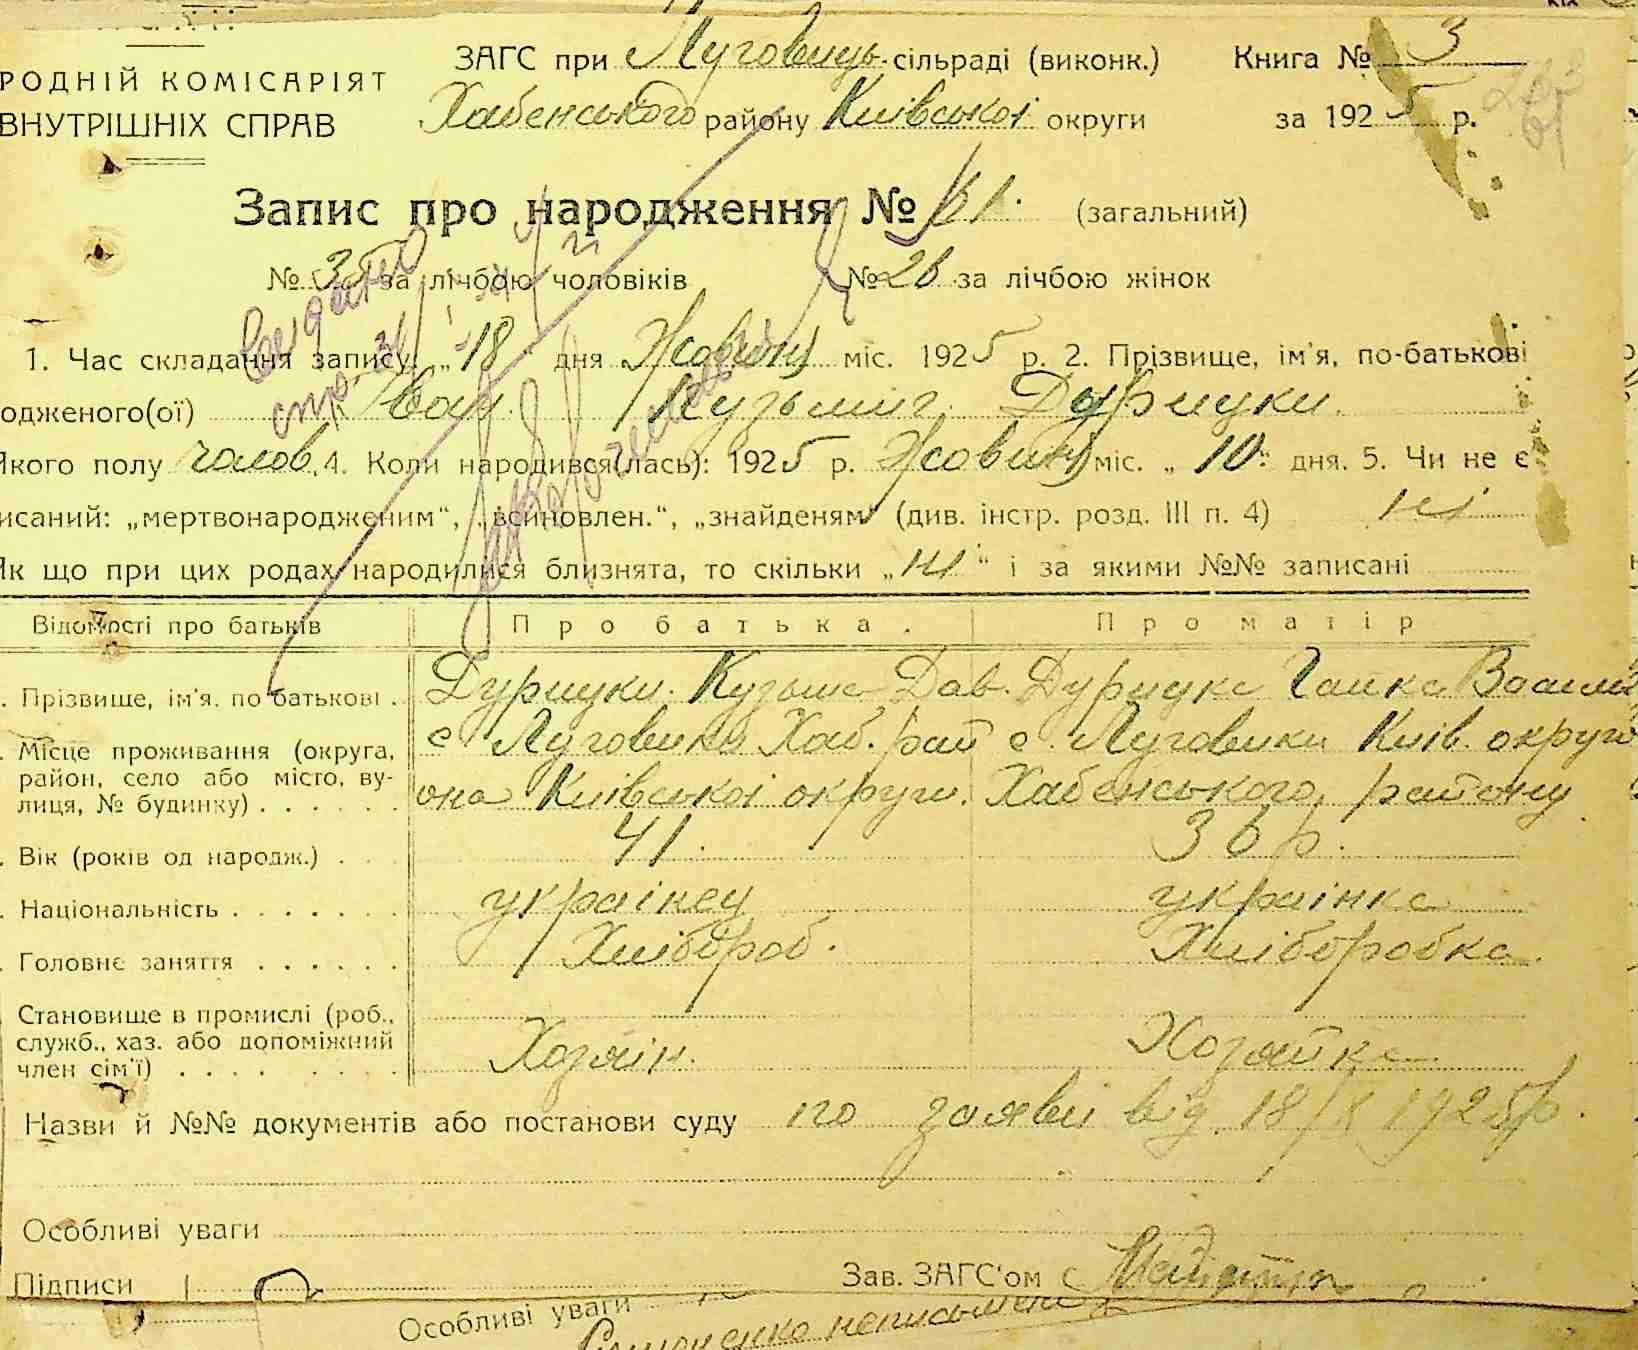 ЗАГС при Луговиць. сільраді (виконк.) Книга № 3
РОДНІЙ КОМІСАРІЯТ
Хабенського району Київської округи за 1925 р.
ВНУТРІШНІХ СПРАВ
Запис про народження № 61. (загальний)
№ 35 за лічбою чоловіків № 26 за лічбою жінок
1. Час складання запису: „18" дня Жовтня міс. 1925 р. 2. Прізвище, ім'я, по-батькові
одженого(ої) Іван Кузьмич Дурицки
Якого полу чолов. 4. Коли народився(лась): 1925 р. Жовтня міс. „10" дня. 5. Чи не є
исаний: „мертвонародженим", „всиновлен.", „знайденям" (див. інстр. розд. III п. 4) ні
Як що при цих родах народилися близнята, то скільки „ні" і за якими №№ записані
Відомості про батьків Про батька. Про матір
. Прізвище, ім'я, по батькові . Дурицки Кузьма Дав. Дурицка Ганка Васил
. Місце проживання (округа, район, село або місто, вулиця, № будинку) . . . . . .
с Луговики Хаб. рай
она Київської округи.
с. Луговики Київ. округи
Хабенського району
. Вік (років од народж.) . . . 41. 36 р.
. Національність . . . . . . . українец українка
. Головне заняття . . . . . . Хлібороб. Хліборобка.
Становище в промислі (роб.,
служб., хаз. або допоміжний
член сім'ї) . . . . . . . . Хозяін. Хозяйка
Назви й №№ документів або постанови суду по заяві від 18/X 1925 р.
Особливі уваги
Підписи Зав. ЗАГС'ом
Особливі уваги